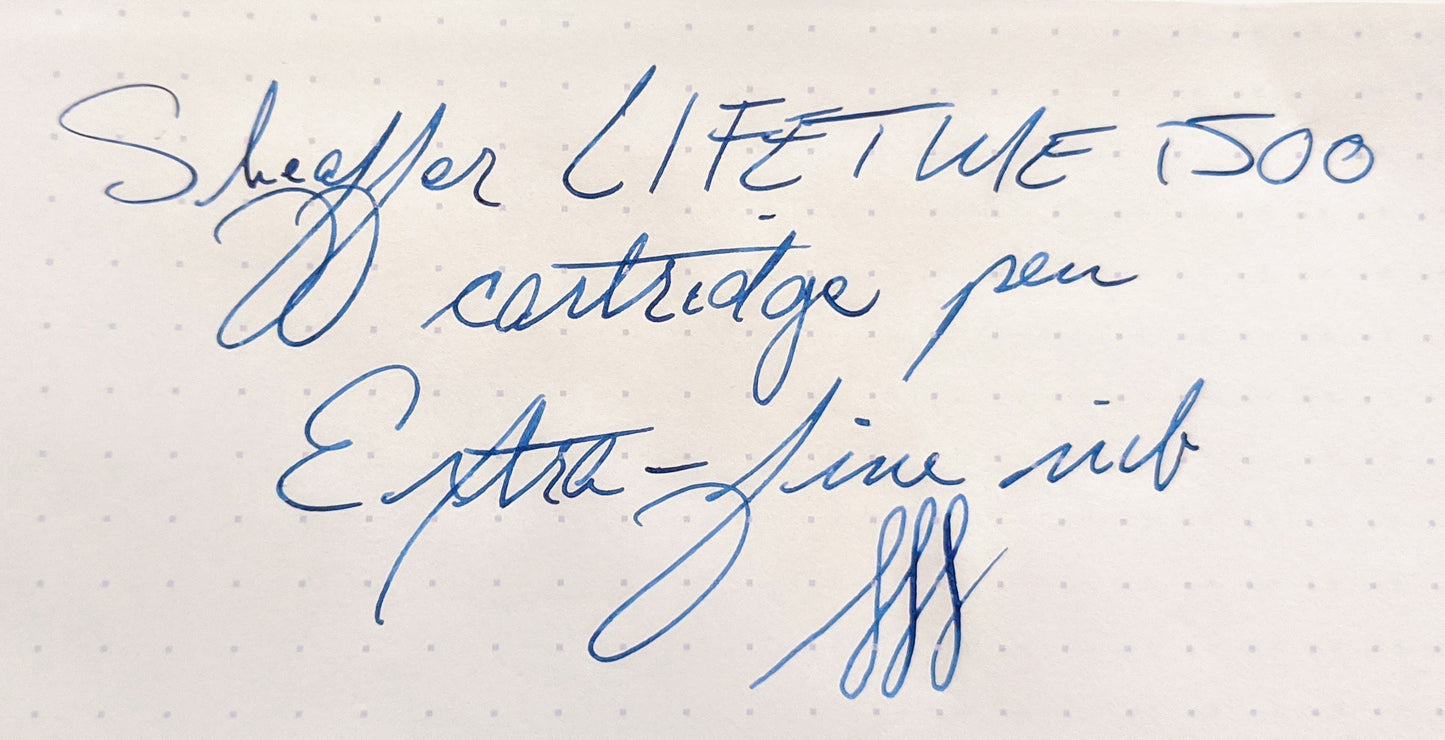 Sheaffer LIFETIME 1500
cartridge pen
Extra-fine nib
fff